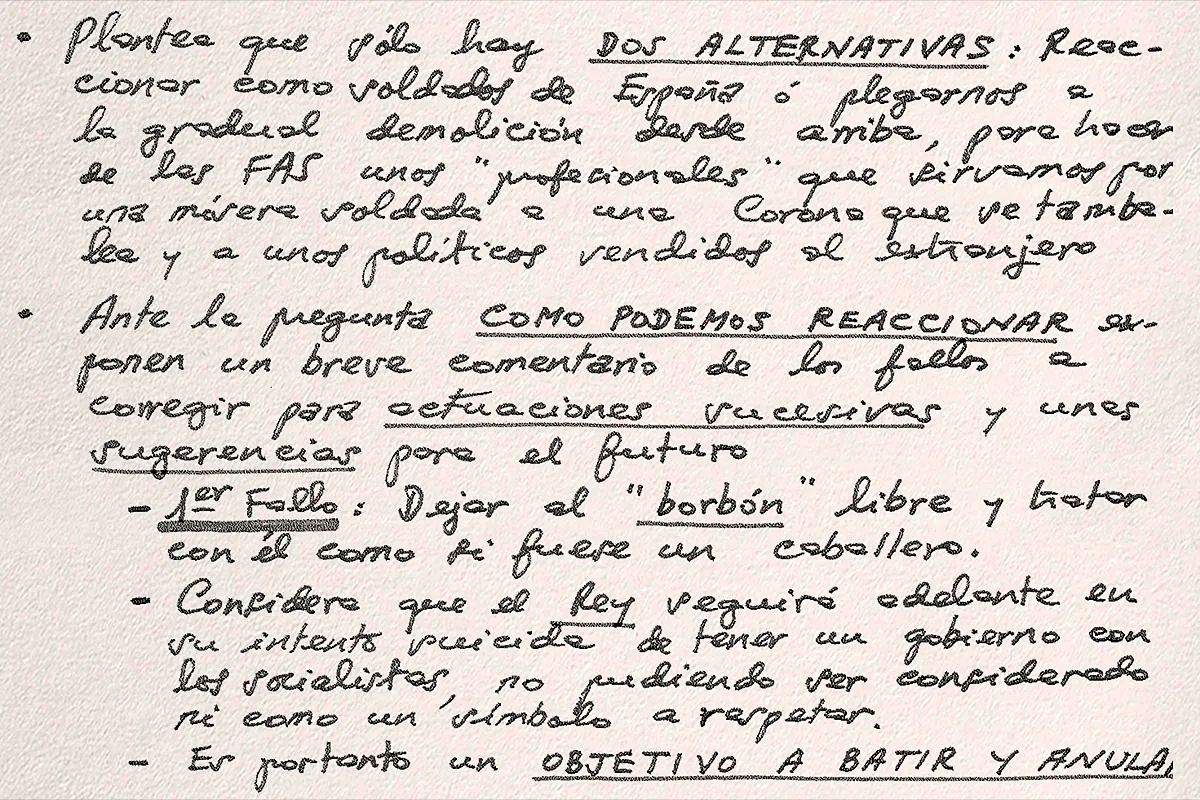 • Plantea que sólo hay DOS ALTERNATIVAS: Reac-
cionar como soldados de España ó plegarnos a
la gradual demolición desde arriba, para hacer
de las FAS unos "profecionales" que sirvamos por
una mísera soldada a una Corona que se tamba-
lea y a unos políticos vendidos al extranjero
• Ante la pregunta COMO PODEMOS REACCIONAR ex-
ponen un breve comentario de los fallos a
corregir para actuaciones sucesivas y unas
sugerencias para el futuro
- 1er Fallo: Dejar al "borbón" libre y tratar
con él como si fuese un caballero.
- Considera que el Rey seguirá adelante en
su intento suicida de tener un gobierno con
los socialistas, no pudiendo ser considerado
ni como un símbolo a respetar.
- Es portanto un OBJETIVO A BATIR Y ANULA